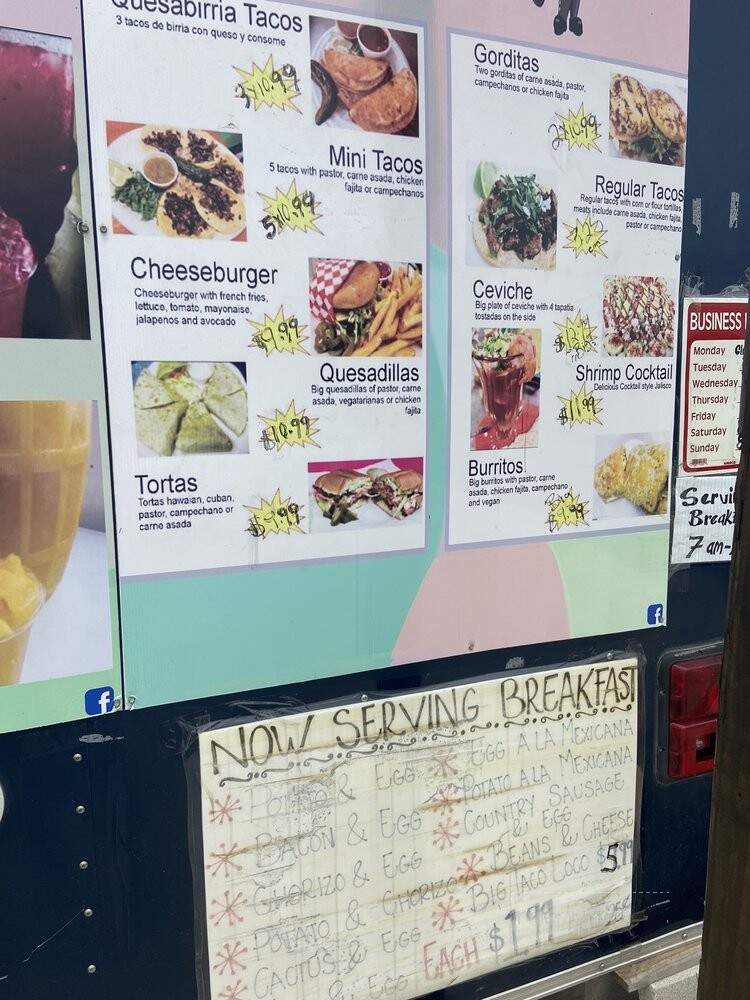 Quesabirria Tacos
3 tacos de birria con queso y consome
3x10.99
Mini Tacos
5 tacos with pastor, carne asada, chicken
fajita or campechanos
5x10.99
Cheeseburger
Cheeseburger with french fries,
lettuce, tomato, mayonaise,
jalapenos and avocado
$9.99
Quesadillas
Big quesadillas of pastor, carne
asada, vegatarianas or chicken
fajita
$10.99
Tortas
Tortas hawaian, cuban,
pastor, campechano or
carne asada
$9.99
Gorditas
Two gorditas of carne asada, pastor,
campechanos or chicken fajita
2x10.99
Regular Tacos
Regular tacos with corn or flour tortillas
meats include carne asada, chicken fajita,
pastor or campechano
Ceviche
Big plate of ceviche with 4 tapatia
tostadas on the side
Shrimp Cocktail
Delicious Cocktail style Jalisco
$11.99
Burritos
Big burritos with pastor, carne
asada, chicken fajita, campechano
and vegan
f
f
BUSINESS
Monday
Tuesday
Wednesday
Thursday
Friday
Saturday
Sunday
7 am-
NOW SERVING BREAKFAST
POTATO & EGG
BACON & EGG
CHORIZO & EGG
POTATO & CHORIZO
CACTUS & EGG
& EGG
EGG A LA MEXICANA
POTATO A LA MEXICANA
COUNTRY SAUSAGE
& EGG
BEANS & CHEESE
BIG TACO LOCO $5.99
EACH $1.99